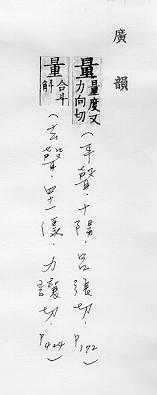 廣韻
量 量度又力向切（平聲．十陽．呂張切．P172）
量 合斗斛（去聲．四十一漾．力讓切．P424）